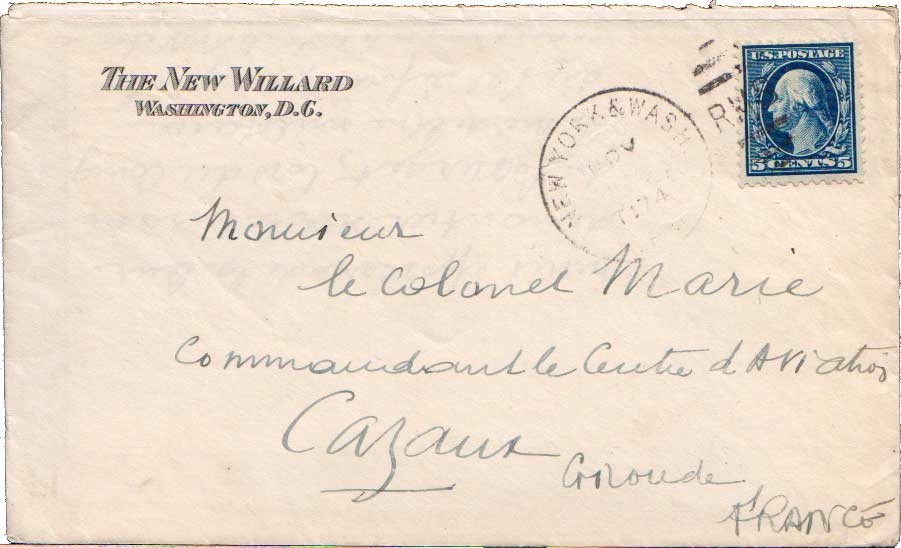 THE NEW WILLARD
WASHINGTON, D.C.
U.S. POSTAGE
5 CENTS 5
NEW YORK & WASH
NOV
TR 24
R
Monsieur
le Colonel Marie
Commandant le Centre d'Aviation
Cazaux
Gironde
FRANCE